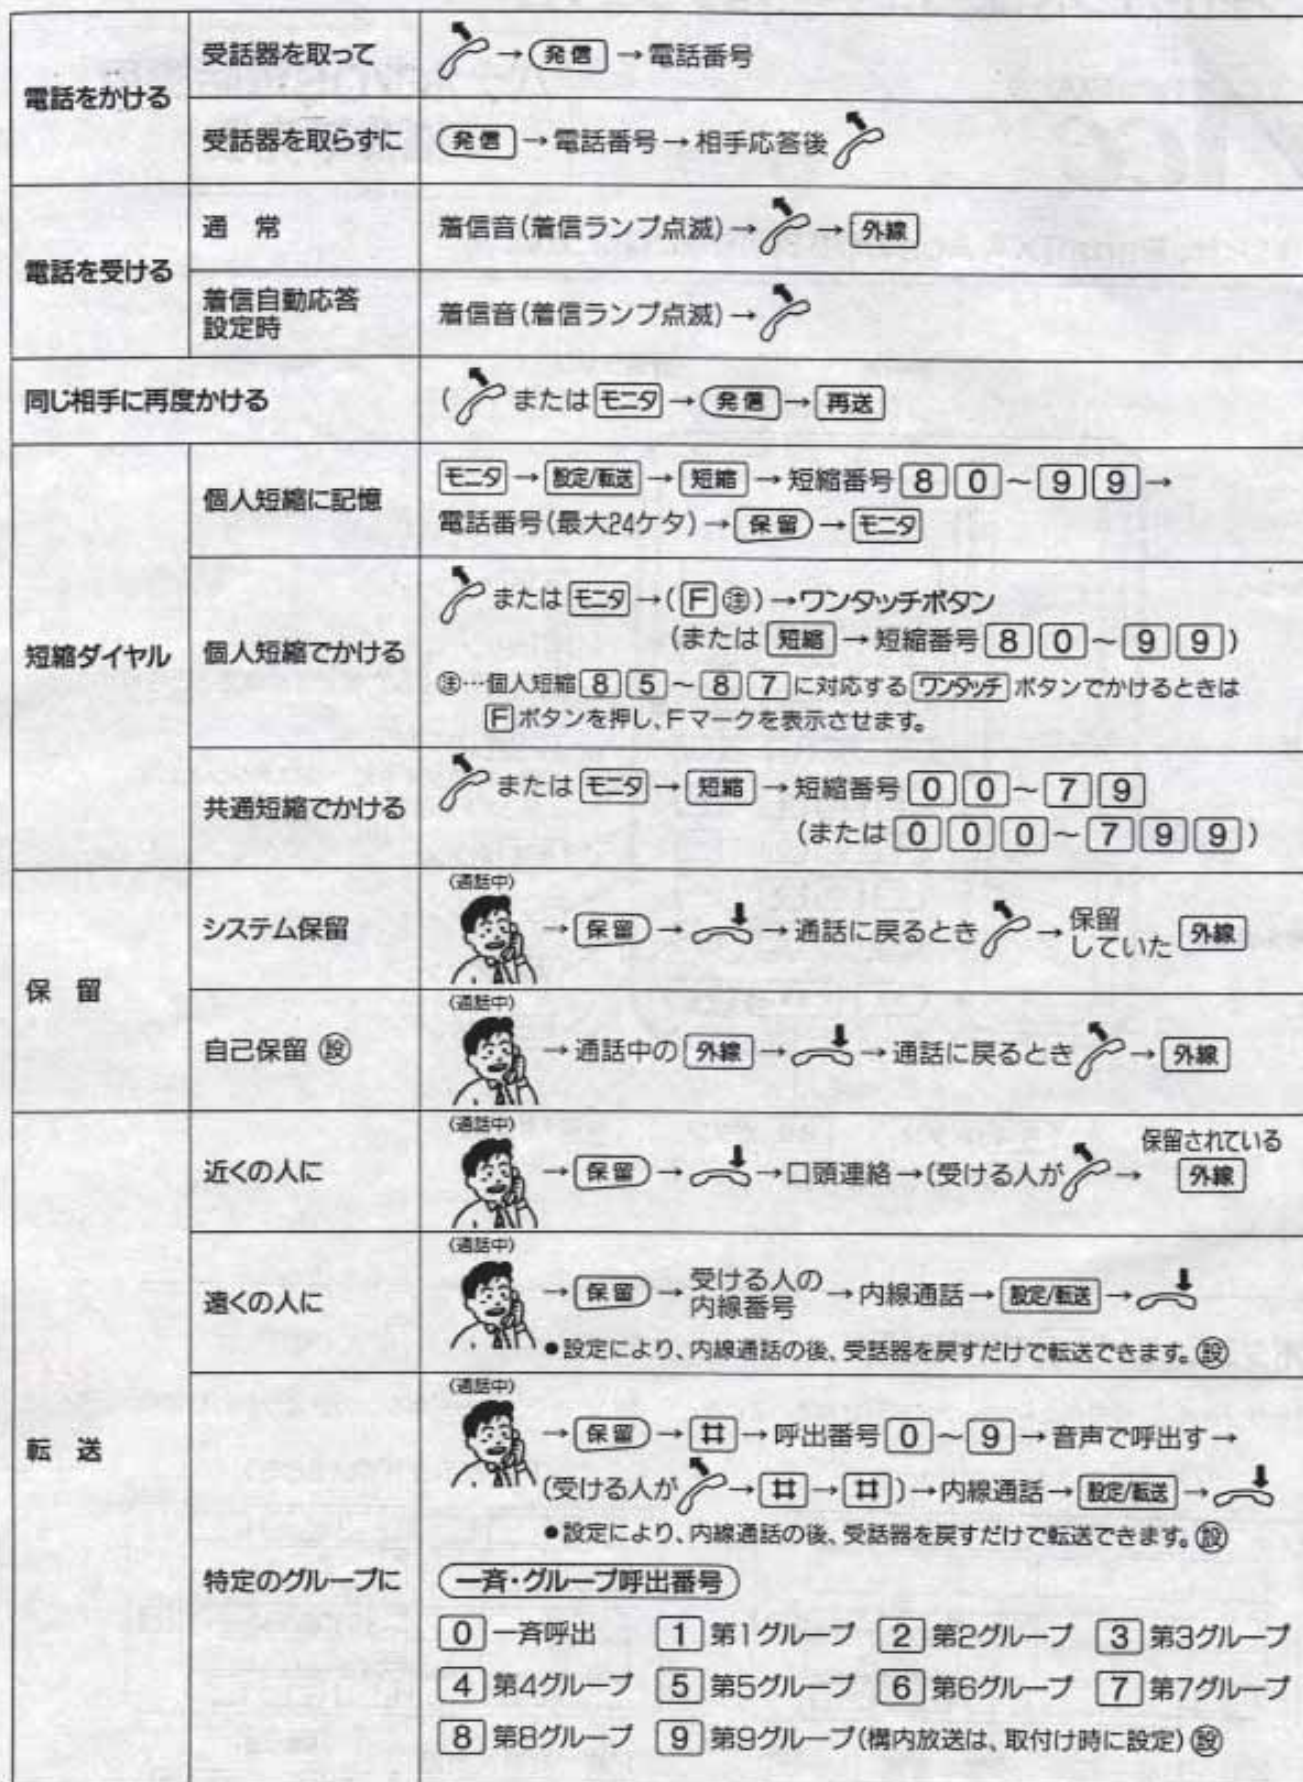 電話をかける
受話器を取って
→発信→電話番号
受話器を取らずに
発信→電話番号→相手応答後
電話を受ける
通 常
着信音(着信ランプ点滅)→→外線
着信自動応答
設定時
着信音(着信ランプ点滅)→
同じ相手に再度かける
(またはモニタ→発信→再送
短縮ダイヤル
個人短縮に記憶
モニタ→設定/転送→短縮→短縮番号80～99→
電話番号(最大24ケタ)→保留→モニタ
個人短縮でかける
またはモニタ→(F注)→ワンタッチボタン
(または短縮→短縮番号80～99)
注…個人短縮85～87に対応するワンタッチボタンでかけるときは
Fボタンを押し、Fマークを表示させます。
共通短縮でかける
またはモニタ→短縮→短縮番号00～79
(または000～799)
保 留
システム保留
(通話中)
→保留→→通話に戻るとき→保留していた外線
自己保留 設
(通話中)
→通話中の外線→→通話に戻るとき→外線
転 送
近くの人に
(通話中)
保留されている
→保留→→口頭連絡→(受ける人が→外線
遠くの人に
(通話中)
→保留→受ける人の内線番号→内線通話→設定/転送→
●設定により、内線通話の後、受話器を戻すだけで転送できます。設
特定のグループに
(通話中)
→保留→#→呼出番号0～9→音声で呼出す→
(受ける人が→#→#)→内線通話→設定/転送→
●設定により、内線通話の後、受話器を戻すだけで転送できます。設
一斉・グループ呼出番号
0一斉呼出 1第1グループ 2第2グループ 3第3グループ
4第4グループ 5第5グループ 6第6グループ 7第7グループ
8第8グループ 9第9グループ(構内放送は、取付け時に設定)設